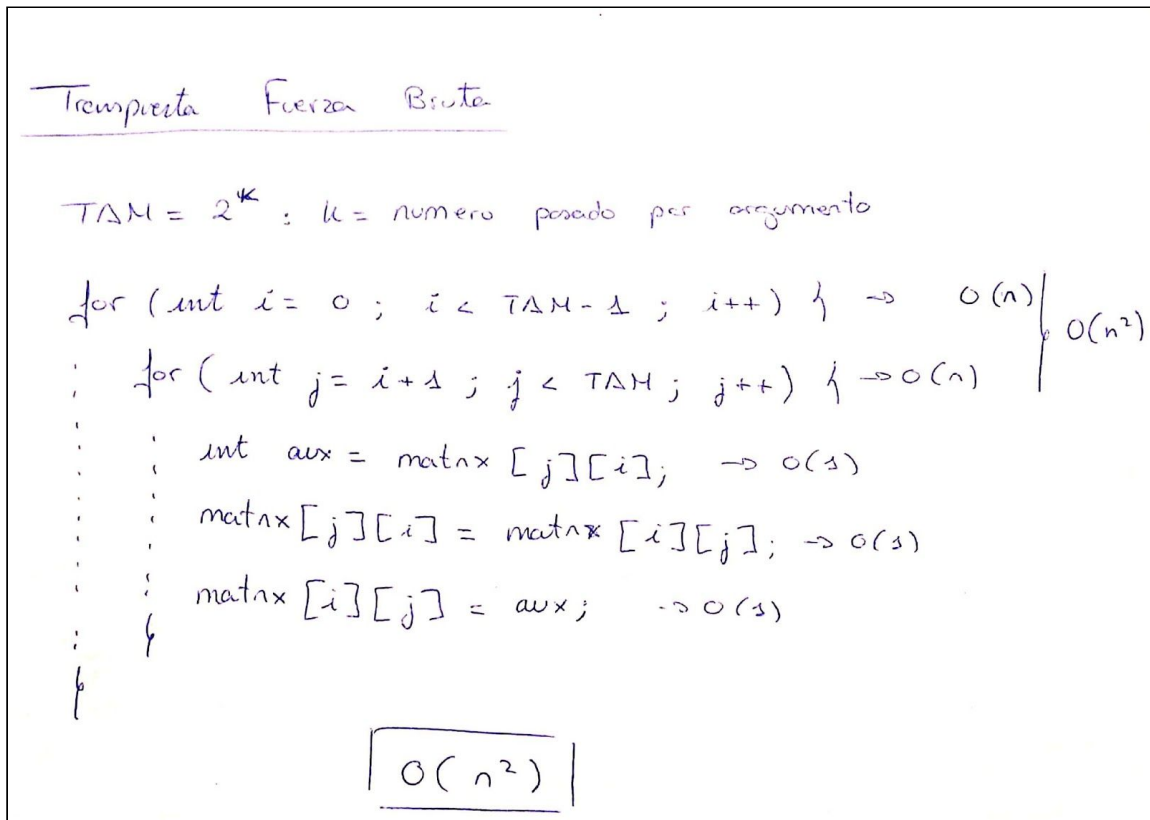 Transpuesta Fuerza Bruta
TAM = 2^k : k = numero pasado por argumento
for (int i = 0 ; i < TAM-1 ; i++) { → O(n)
O(n²)
for (int j = i+1 ; j < TAM ; j++) { → O(n)
int aux = matrix [j][i]; → O(1)
matrix[j][i] = matrix [i][j]; → O(1)
matrix [i][j] = aux; → O(1)
}
}
O(n²)